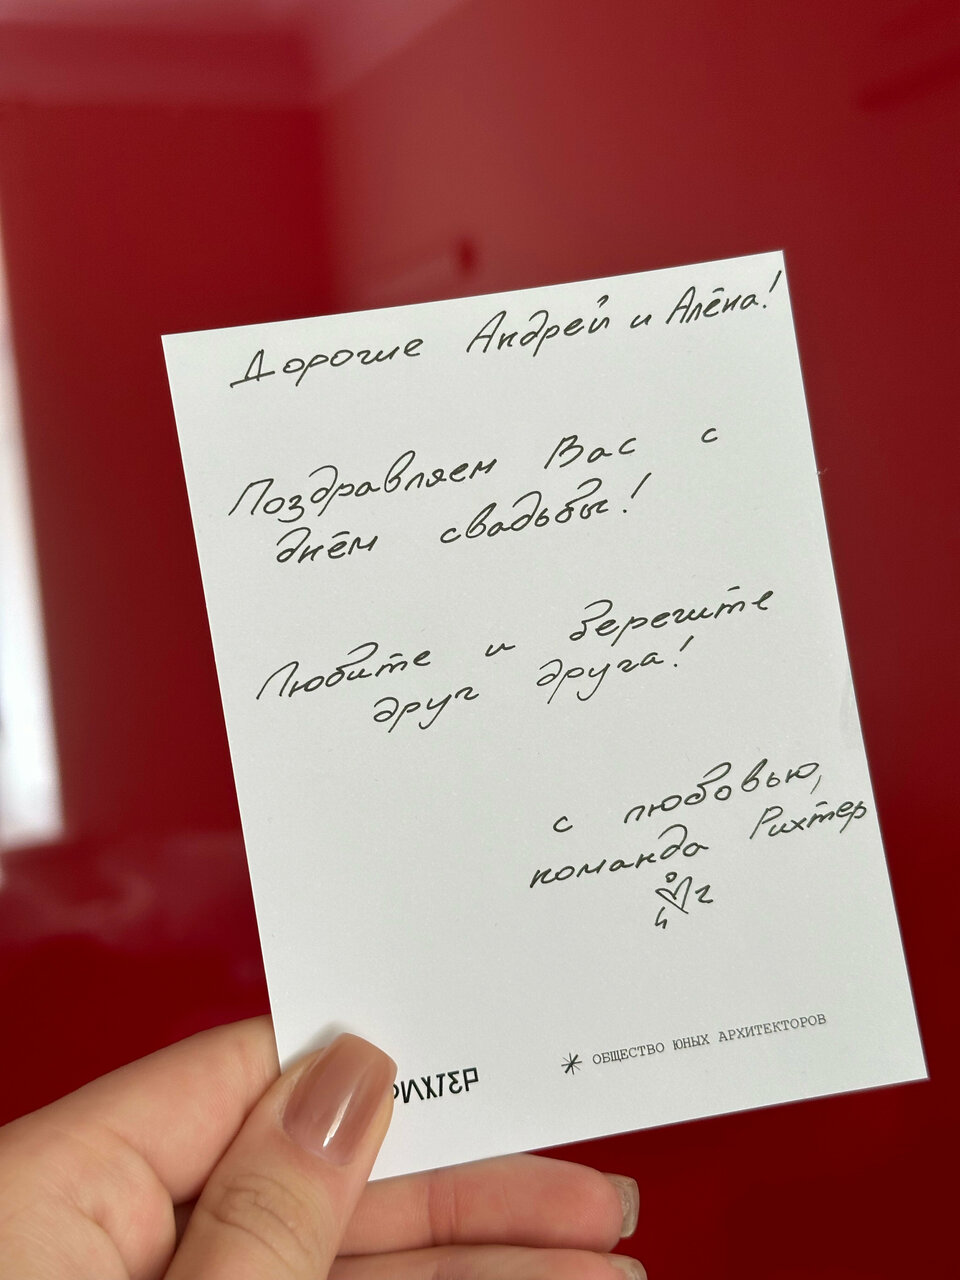 Дорогие Андрей и Алёна!
Поздравляем Вас с
днём свадьбы!
Любите и берегите
друг друга!
с любовью,
команда Рихтер
РИХТЕР
* ОБЩЕСТВО ЮНЫХ АРХИТЕКТОРОВ